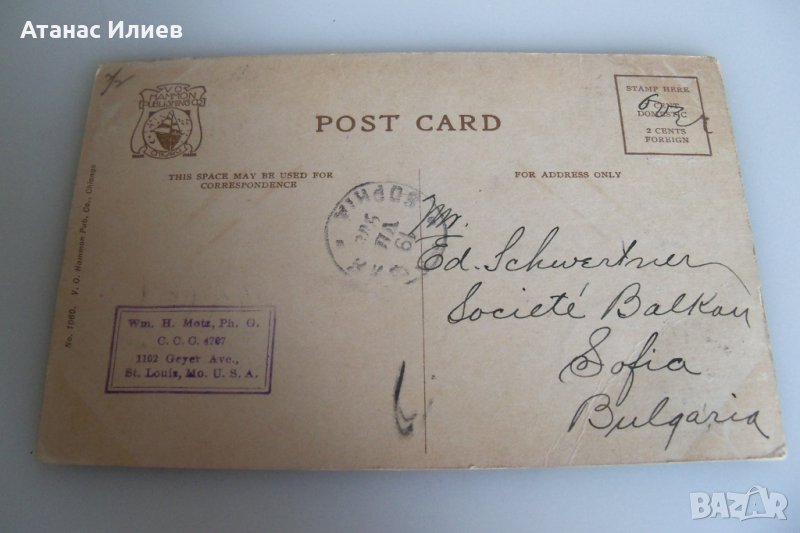 Атанас Илиев
V. O.
HAMMON
PUBLISHING CO.
CHICAGO
POST CARD
THIS SPACE MAY BE USED FOR
CORRESPONDENCE
FOR ADDRESS ONLY
STAMP HERE
1 CENT
DOMESTIC
2 CENTS
FOREIGN
over
No. 1060. V. O. Hammon Pub. Co., Chicago
SOPHIA
VII
Mr.
Ed. Schwertner
Societé Balkan
Sofia
Bulgaria
Wm. H. Motz, Ph. G.
C. C. C. 4707
1102 Geyer Ave.,
St. Louis, Mo. U. S. A.
BAZAR